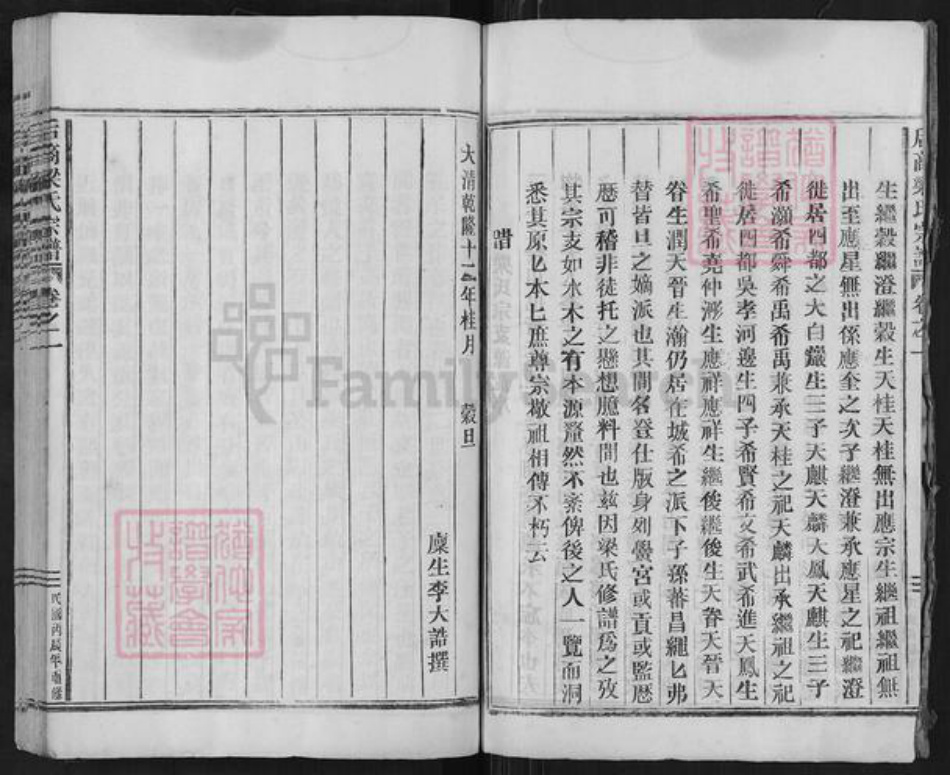 生繼穀繼澄繼穀生天桂天桂無出應宗生繼祖繼祖無
出至應星無出係應奎之次子繼澄兼承應星之祀繼澄
徙居四都之大白巖生三子天麒天麟天鳳天麒生三子
希灝希舜希禹希禹兼承天桂之祀天麟出承繼祖之祀
徙居四都吳孝河邊生四子希賢希文希武希進天鳳生
希聖希堯仲生應祥應祥生繼俊繼俊生天眷天晉天
眷生潤天晉生瀚仍居在城希之派下子孫蕃昌繩匕弗
替皆旦之嫡派也其間名登仕版身列黌宮或貢或監歷
歷可稽非徒托之懸想臆料間也茲因梁氏修譜爲之攷
其宗支如水木之有本源釐然不紊俾後之人一覽而洞
悉其原匕本匕庶尊宗敬祖相傳不朽云
峕
大清乾隆十二年桂月 穀旦
廩生李大誥撰
梁氏宗譜 卷之一
民國丙辰年重修
FamilySearch